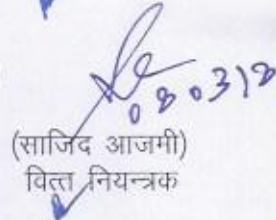 080318
(साजिद आजमी)
वित्त नियन्त्रक